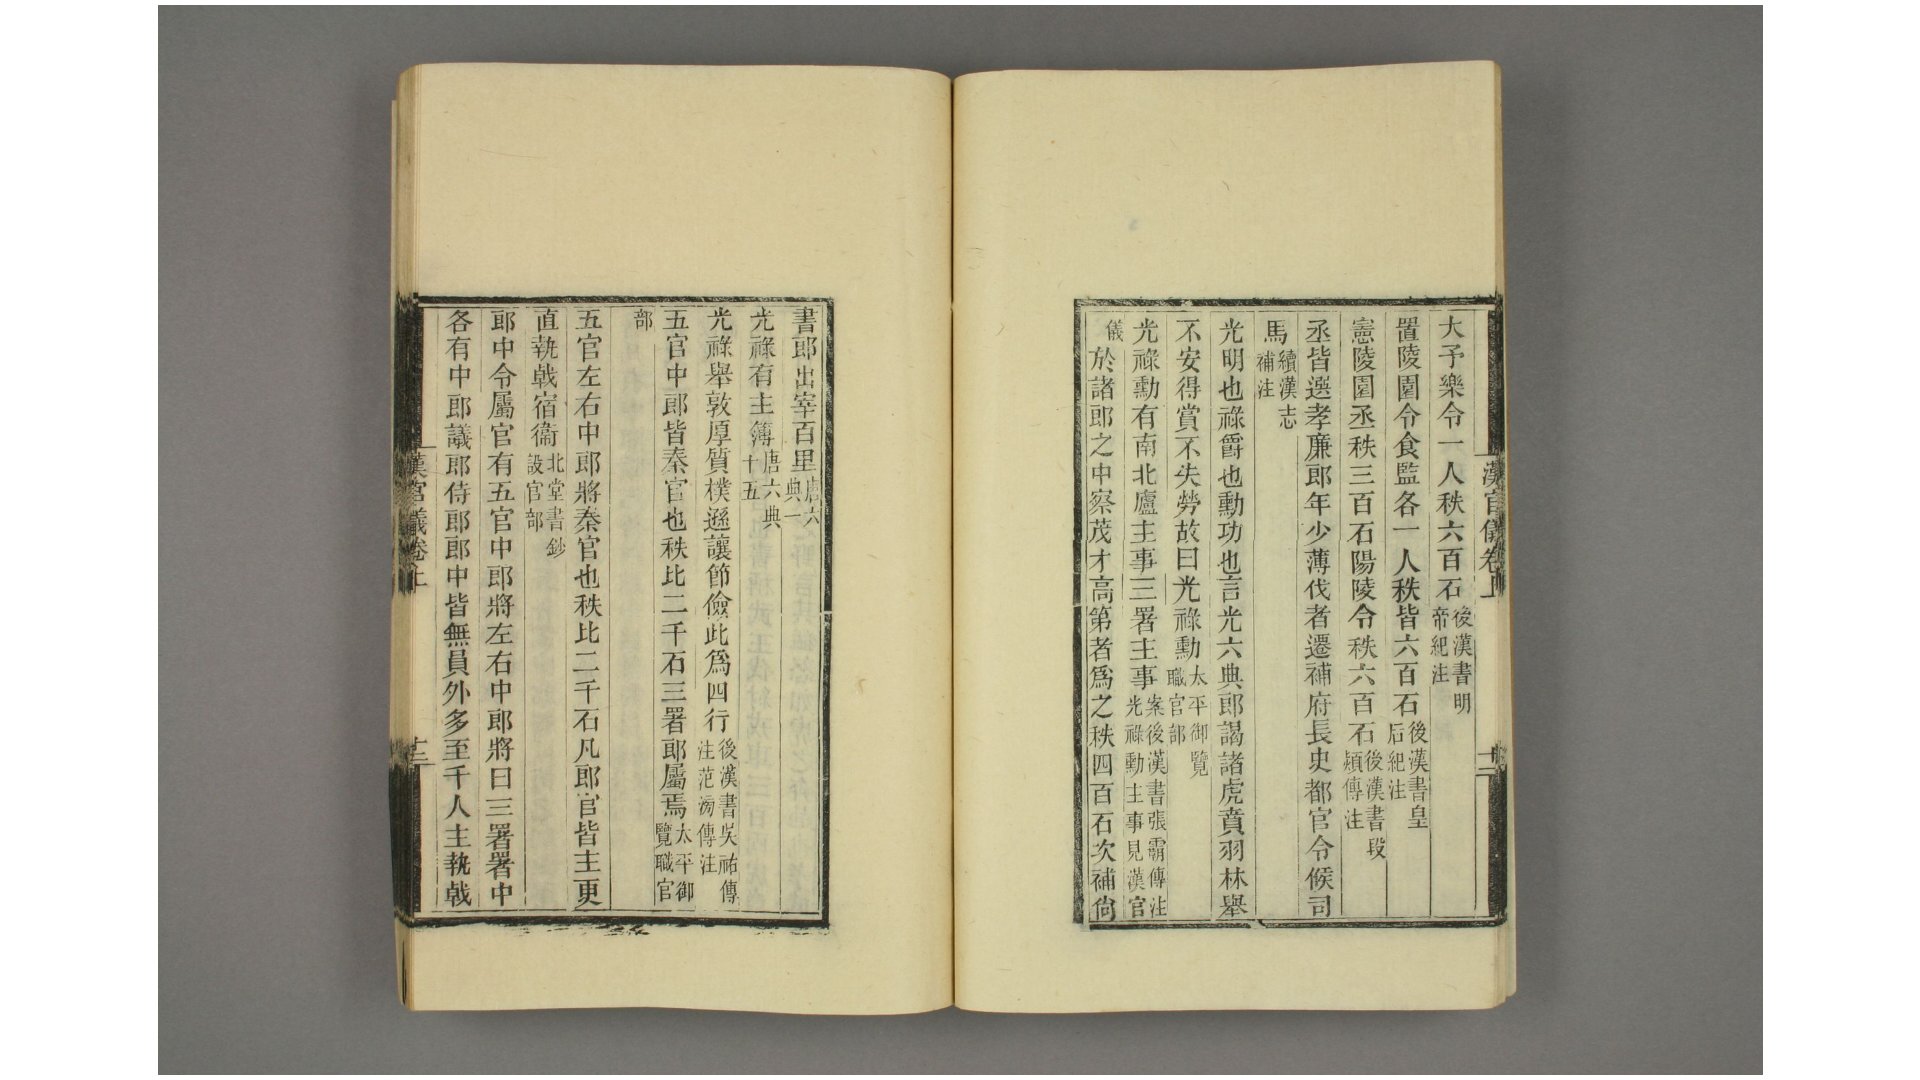 漢官儀卷上
十二
大予樂令一人秩六百石後漢書明帝紀注
置陵園令食監各一人秩皆六百石後漢書皇后紀注
憲陵園丞秩三百石陽陵令秩六百石後漢書段熲傳注
丞皆選孝廉郎年少薄伐者遷補府長史都官令候司
馬續漢志補注
光明也祿爵也勳功也言光六典郎謁諸虎賁羽林舉
不安得賞不失勞故曰光祿勳太平御覽職官部
光祿勳有南北廬主事三署主事案後漢書張霸傳注光祿勳主事見漢官
儀於諸郎之中察茂才高第者爲之秩四百石次補尙
書郎出宰百里唐六典一
光祿有主簿唐六典十五
光祿舉敦厚質樸遜讓節儉此爲四行後漢書吳祐傳注范滂傳注
五官中郎皆秦官也秩比二千石三署郎屬焉太平御覽職官
部
五官左右中郎將秦官也秩比二千石凡郎官皆主更
直執戟宿衞北堂書鈔設官部
郎中令屬官有五官中郎將左右中郎將曰三署署中
各有中郎議郎侍郎郎中皆無員外多至千人主執戟
漢官儀卷上
十三